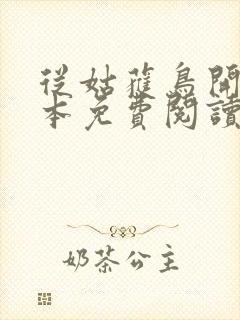 從姑獲鳥開
本免費閱讀
奶茶公主